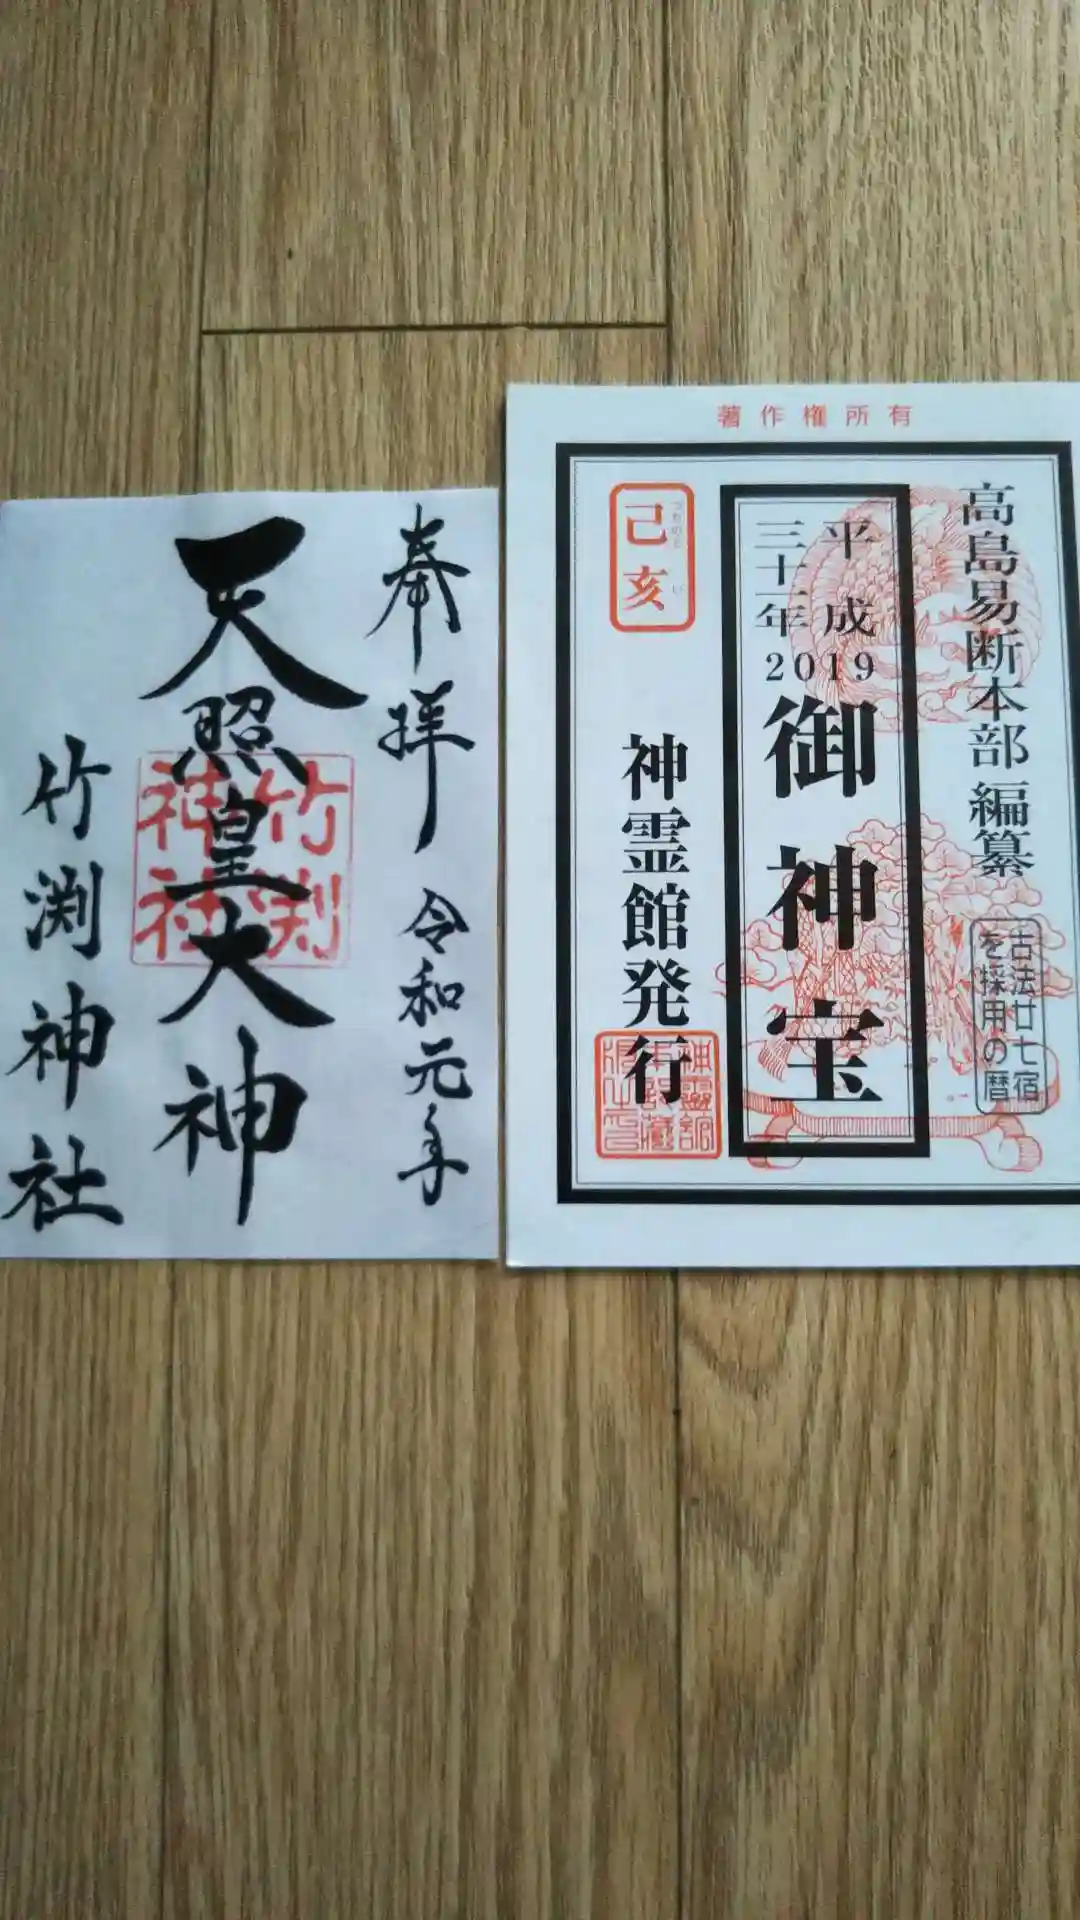 奉拝 令和元年
天照皇大神
竹渕神社
竹渕
神社
著作権所有
高島易断本部 編纂
古法廿七宿
を採用の暦
平成
三十一年
2019
御神宝
己亥
つちのと い
神霊館発行